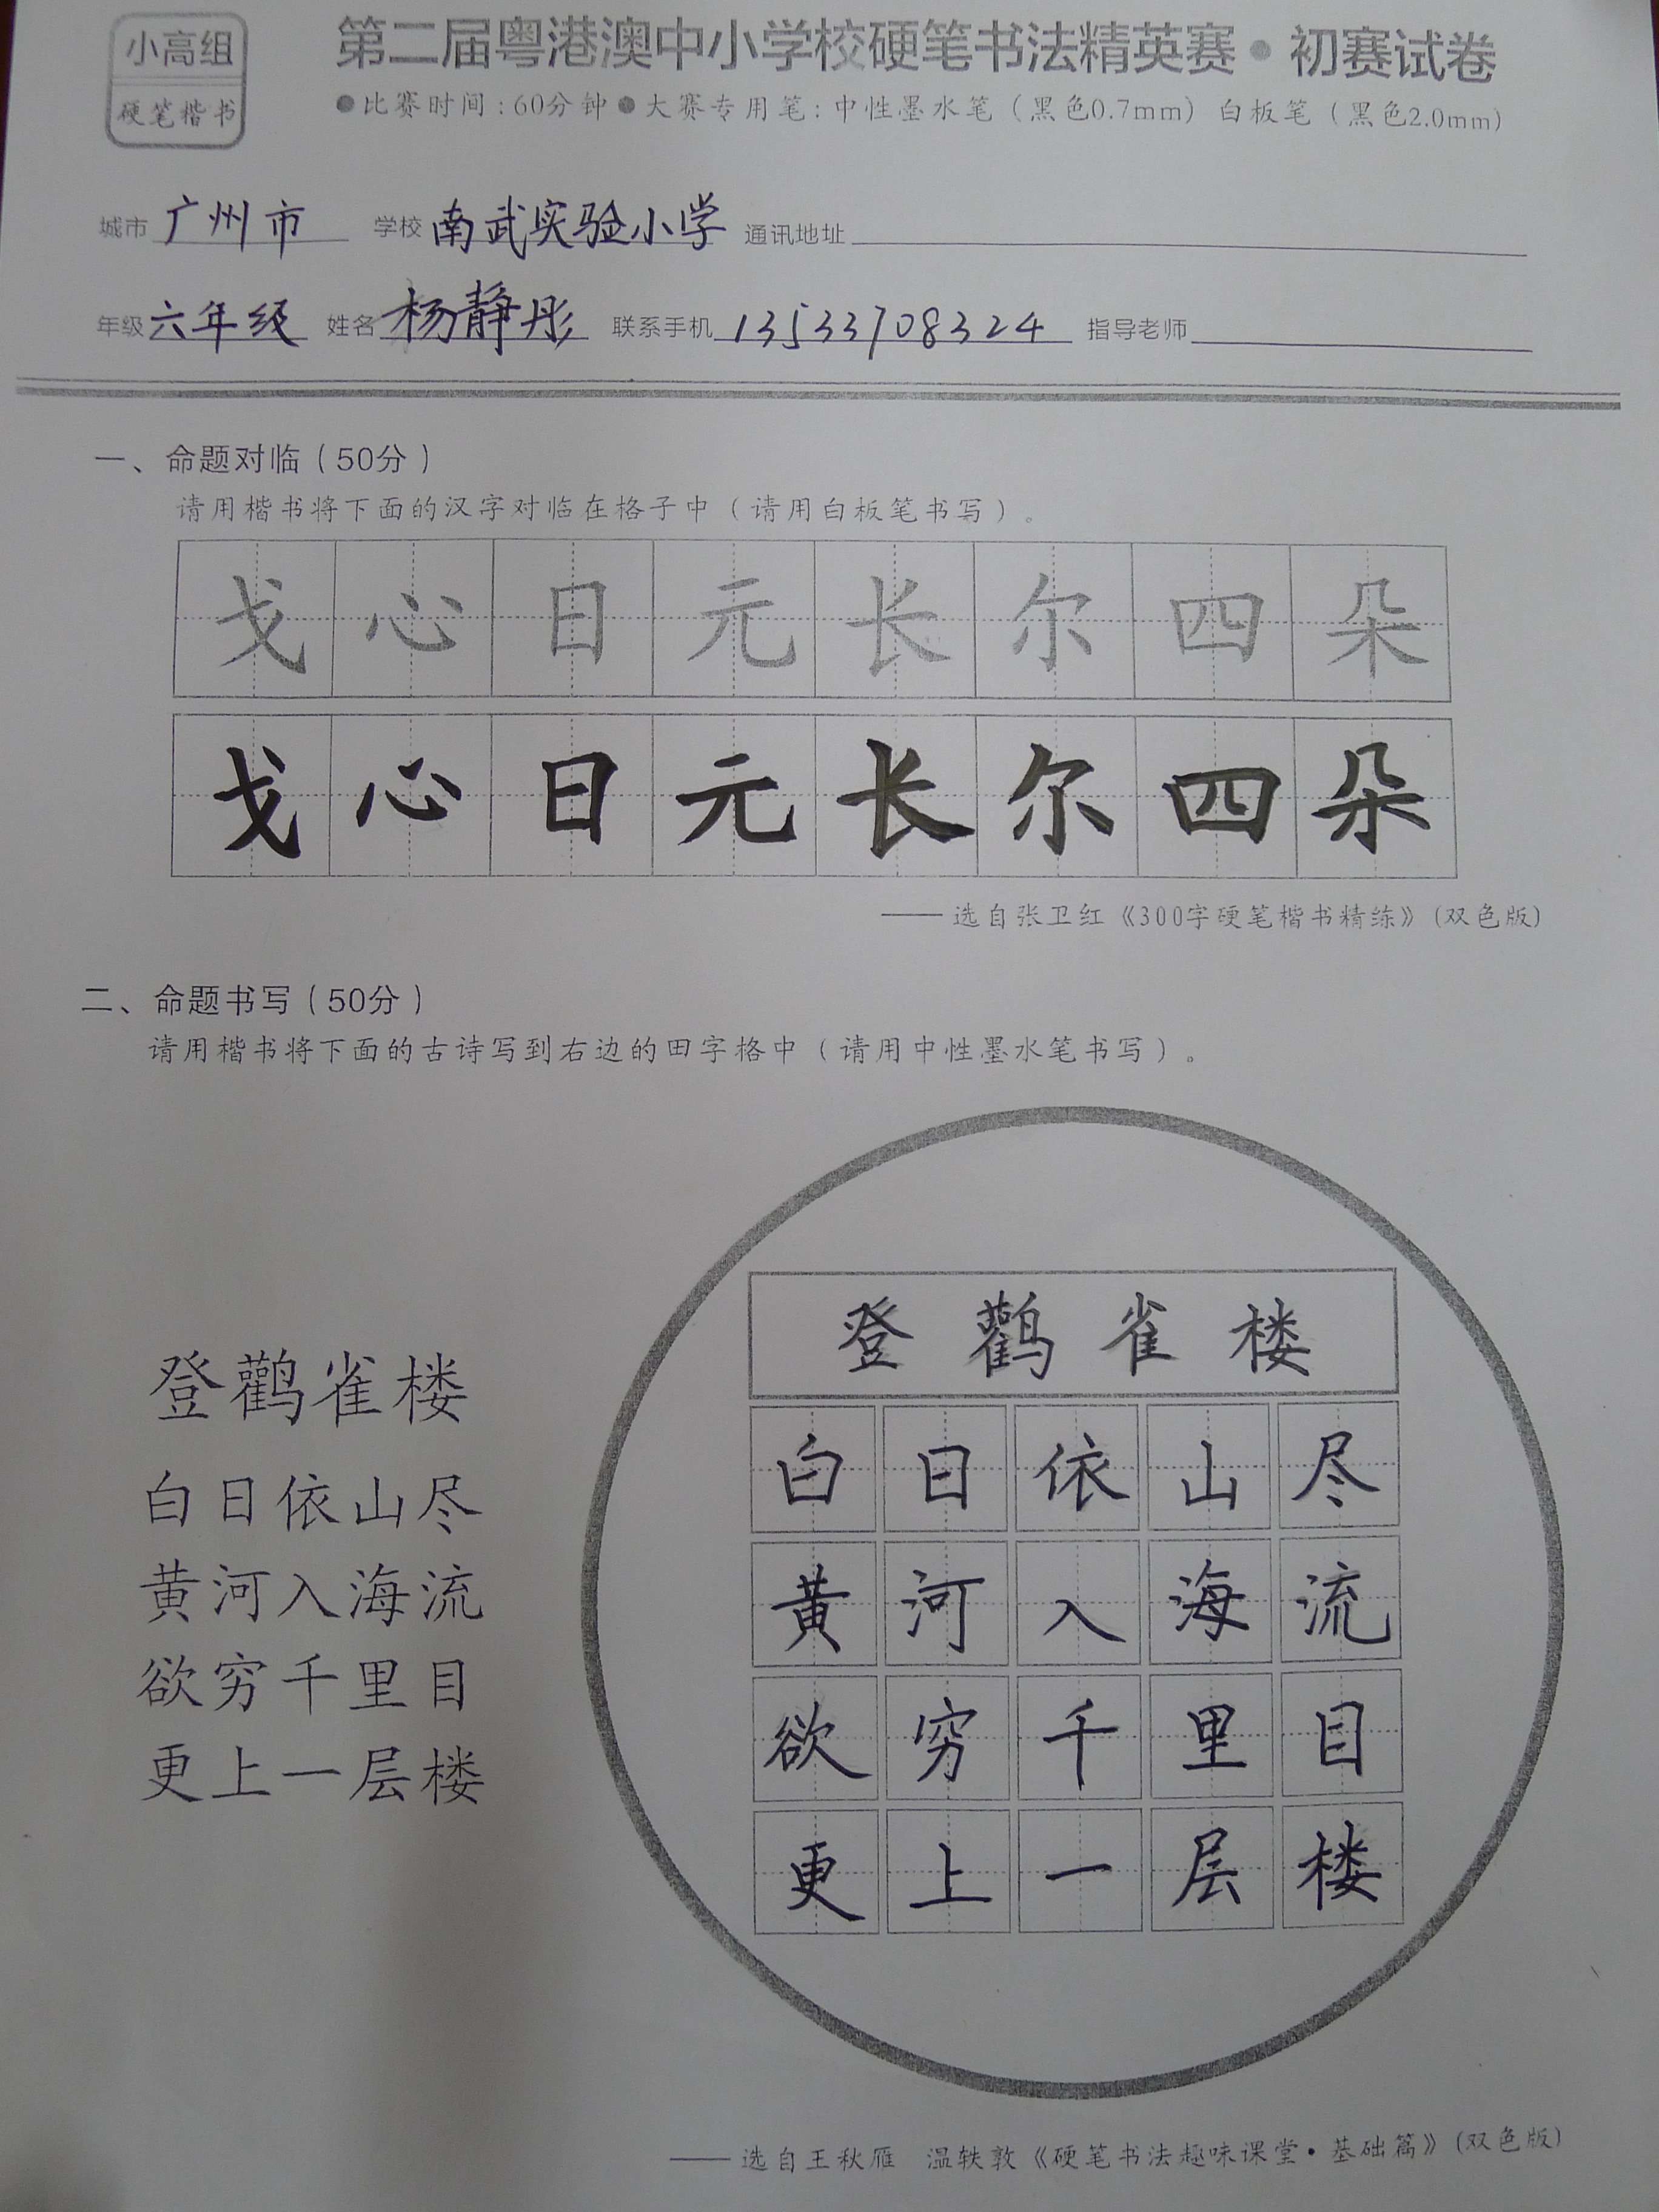 小高组
硬笔楷书
第二届粤港澳中小学校硬笔书法精英赛·初赛试卷
●比赛时间：60分钟●大赛专用笔：中性墨水笔（黑色0.7mm）白板笔（黑色2.0mm）
城市 广州市 学校 南武实验小学 通讯地址
年级 六年级 姓名 杨静彤 联系手机 13533708324 指导老师
一、命题对临（50分）
请用楷书将下面的汉字对临在格子中（请用白板笔书写）。
戈心日元长尔四朵
戈心日元长尔四朵
——选自张卫红《300字硬笔楷书精练》(双色版)
二、命题书写（50分）
请用楷书将下面的古诗写到右边的田字格中（请用中性墨水笔书写）。
登鹳雀楼
白日依山尽
黄河入海流
欲穷千里目
更上一层楼
登鹳雀楼
白日依山尽
黄河入海流
欲穷千里目
更上一层楼
——选自王秋雁 温轶敦《硬笔书法趣味课堂·基础篇》(双色版)